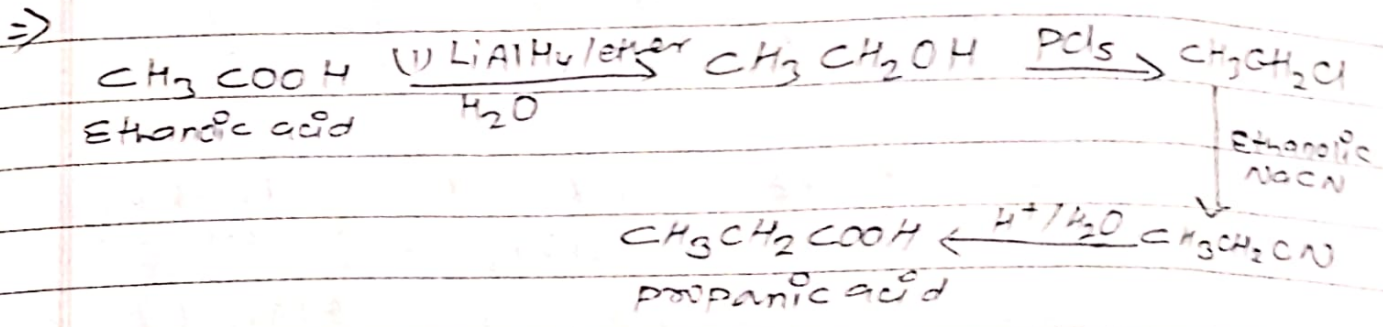 =>
CH₃ COOH (i) LiAlH₄/ether → CH₃ CH₂OH PCl₅ → CH₃CH₂Cl
H₂O
Ethanoic acid
Ethanolic
NaCN
CH₃CH₂COOH ← H⁺/H₂O CH₃CH₂CN
propanic acid